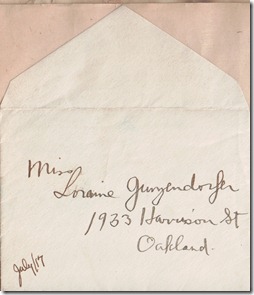 Miss
Loraine Gunzendorfer
1933 Harrison St
Oakland.
July/17